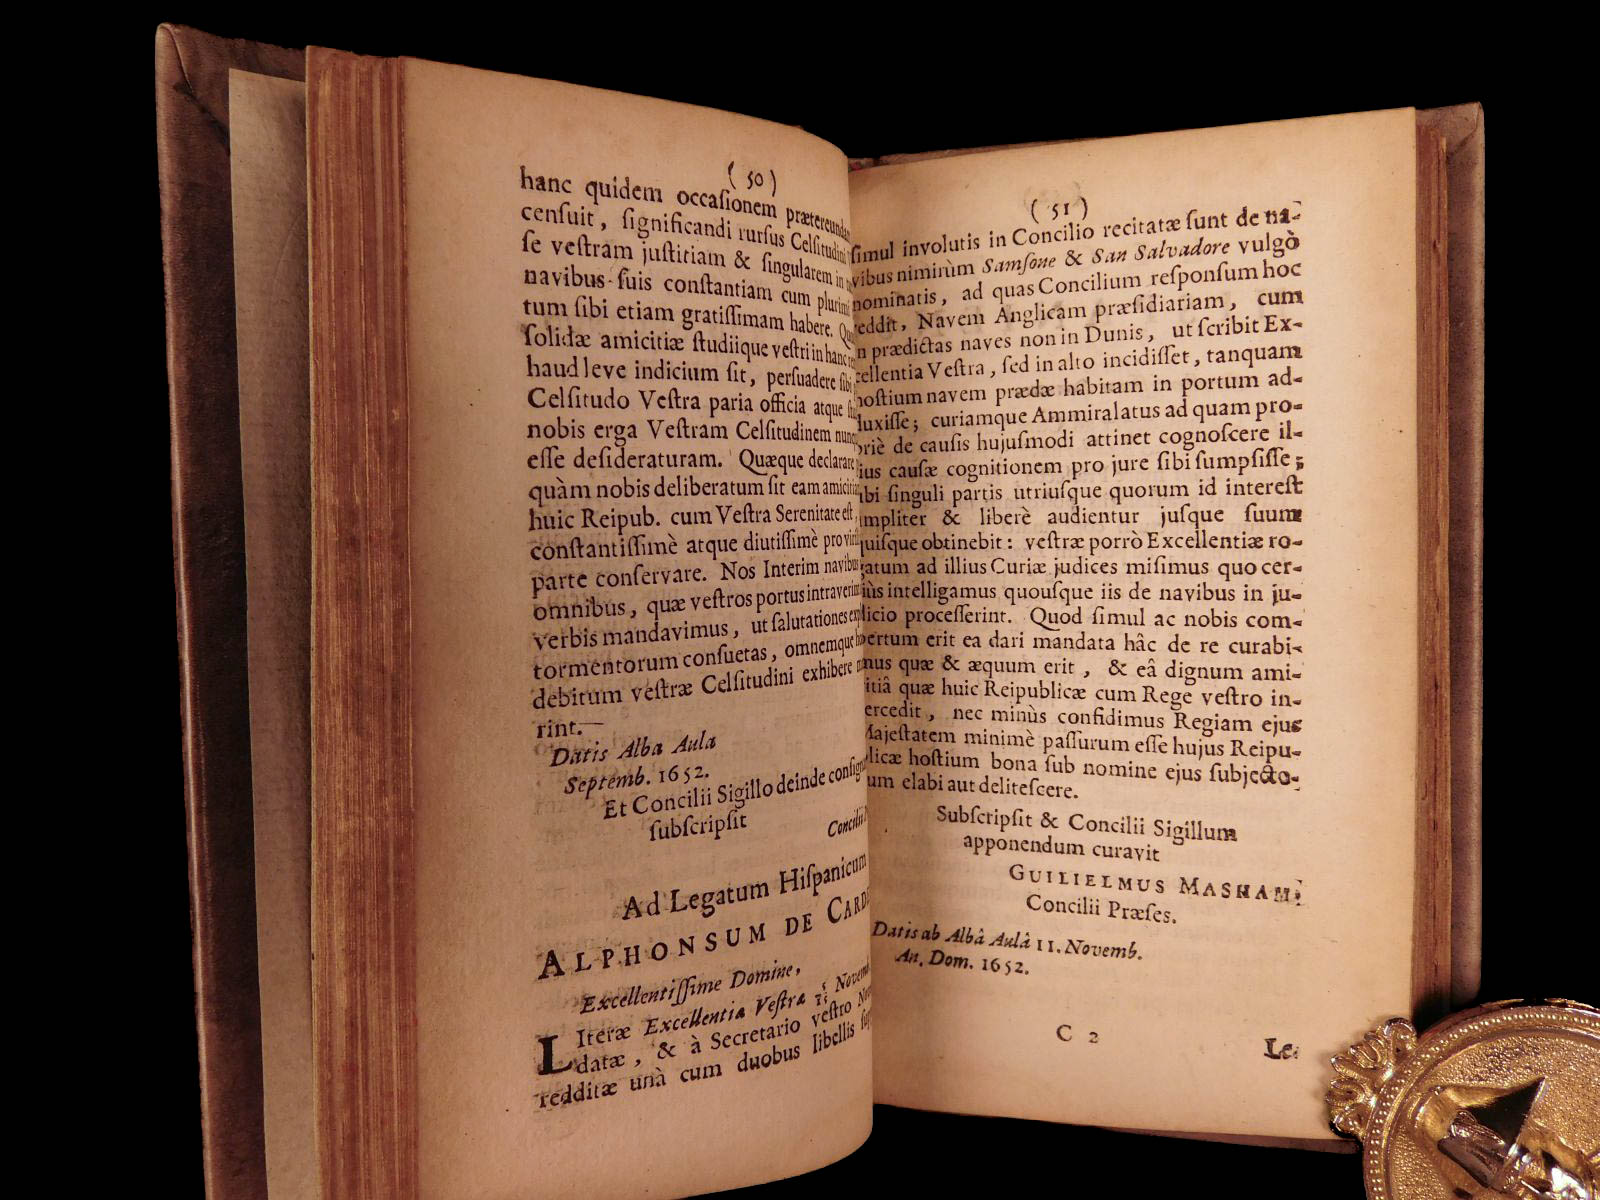 ( 50 )
hanc quidem occaſionem prætereundam
cenſuit, ſignificandi rurſus Celſitudini
ſe veſtram juſtitiam & ſingularem in
navibus ſuis conſtantiam cum plurimi
tum ſibi etiam gratiſſimam habere.
ſolidæ amicitiæ ſtudiique veſtri in hanc
haud leve indicium ſit, perſuadere ſibi
Celſitudo Veſtra paria officia atque
nobis erga Veſtram Celſitudinem
eſſe deſideraturam. Quæque declarare
quàm nobis deliberatum ſit eam
huic Reipub. cum Veſtra Serenitate eſt,
conſtantiſſimè atque diutiſſimè pro
parte conſervare. Nos Interim navibus
omnibus, quæ veſtros portus
verbis mandavimus, ut ſalutationes
tormentorum conſuetas, omnemque
debitum veſtræ Celſitudini exhibere
rint.
Datis Alba Aula
Septemb. 1652.
Et Concilii Sigillo deinde
ſubſcripſit
Concilii
Ad Legatum Hiſpanicum
ALPHONSUM DE
Excellentiſſime Domine,
LIteræ Excellentiæ Veſtræ
datæ, & à Secretario veſtro
redditæ unà cum duobus libellis
( 51 )
ſimul involutis in Concilio recitatæ ſunt de na-
vibus nimirùm Samſone & San Salvadore vulgò
nominatis, ad quas Concilium reſponſum hoc
reddit, Navem Anglicam præſidiariam, cum
in prædictas naves non in Dunis, ut ſcribit Ex-
cellentia Veſtra, ſed in alto incidiſſet, tanquam
hoſtium navem prædæ habitam in portum ad-
duxiſſe; curiamque Ammiralatus ad quam pro-
priè de cauſis hujuſmodi attinet cognoſcere il-
lius cauſæ cognitionem pro jure ſibi ſumpſiſſe;
ubi ſinguli partis utriuſque quorum id intereſt
ampliter & liberè audientur juſque ſuum
quiſque obtinebit: veſtræ porrò Excellentiæ ro-
gatum ad illius Curiæ judices miſimus quo cer-
tiùs intelligamus quouſque iis de navibus in ju-
dicio proceſſerint. Quod ſimul ac nobis com-
pertum erit ea dari mandata hâc de re curabi-
mus quæ & æquum erit, & eâ dignum ami-
citiâ quæ huic Reipublicæ cum Rege veſtro in-
tercedit, nec minùs confidimus Regiam ejus
Majeſtatem minimè paſſurum eſſe hujus Reipu-
blicæ hoſtium bona ſub nomine ejus ſubjecto-
rum elabi aut deliteſcere.
Subſcripſit & Concilii Sigillum
apponendum curavit
GUILIELMUS MASHAM,
Concilii Præſes.
Datis ab Albâ Aulâ 11. Novemb.
An. Dom. 1652.
C 2